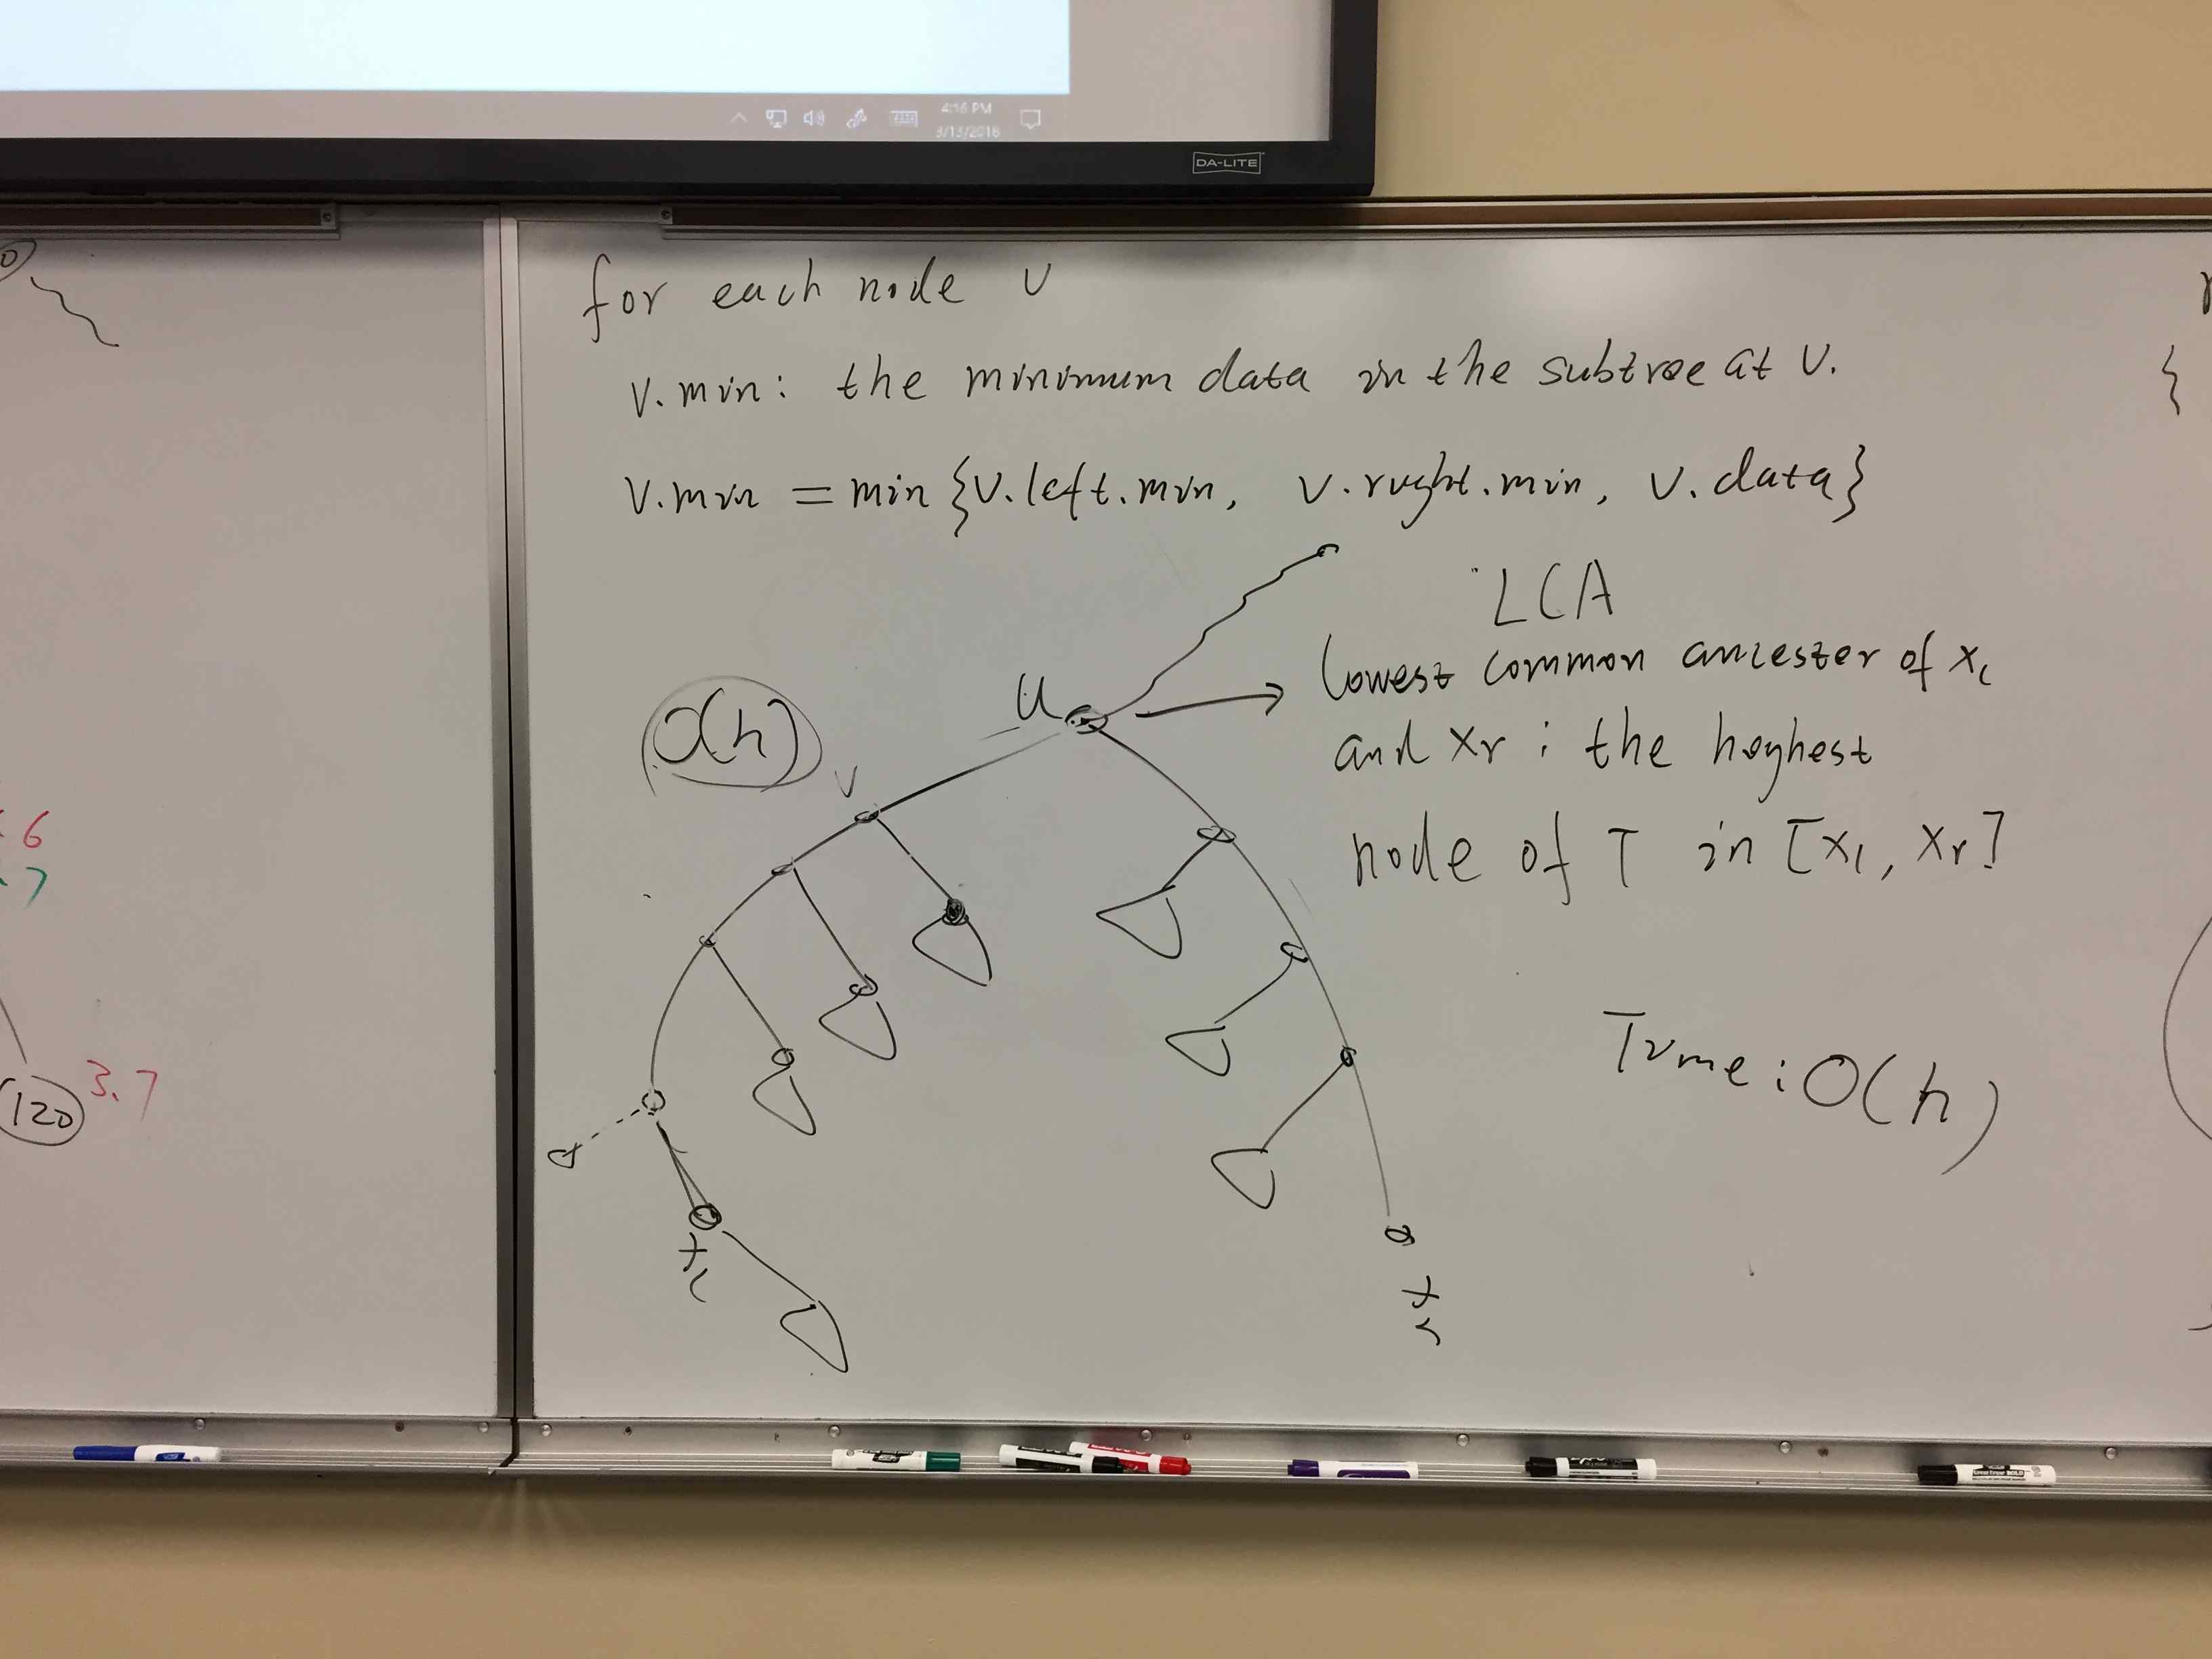 4:16 PM
3/13/2018
DA-LITE
for each node v
v.min: the minimum data in the subtree at v.
v.min = min {v.left.min, v.right.min, v.data}
LCA
lowest common ancester of xl
and xr : the highest
node of T in [xl, xr]
u
O(h)
v
Time: O(h)
xl
xr
6
7
120 3.7
{